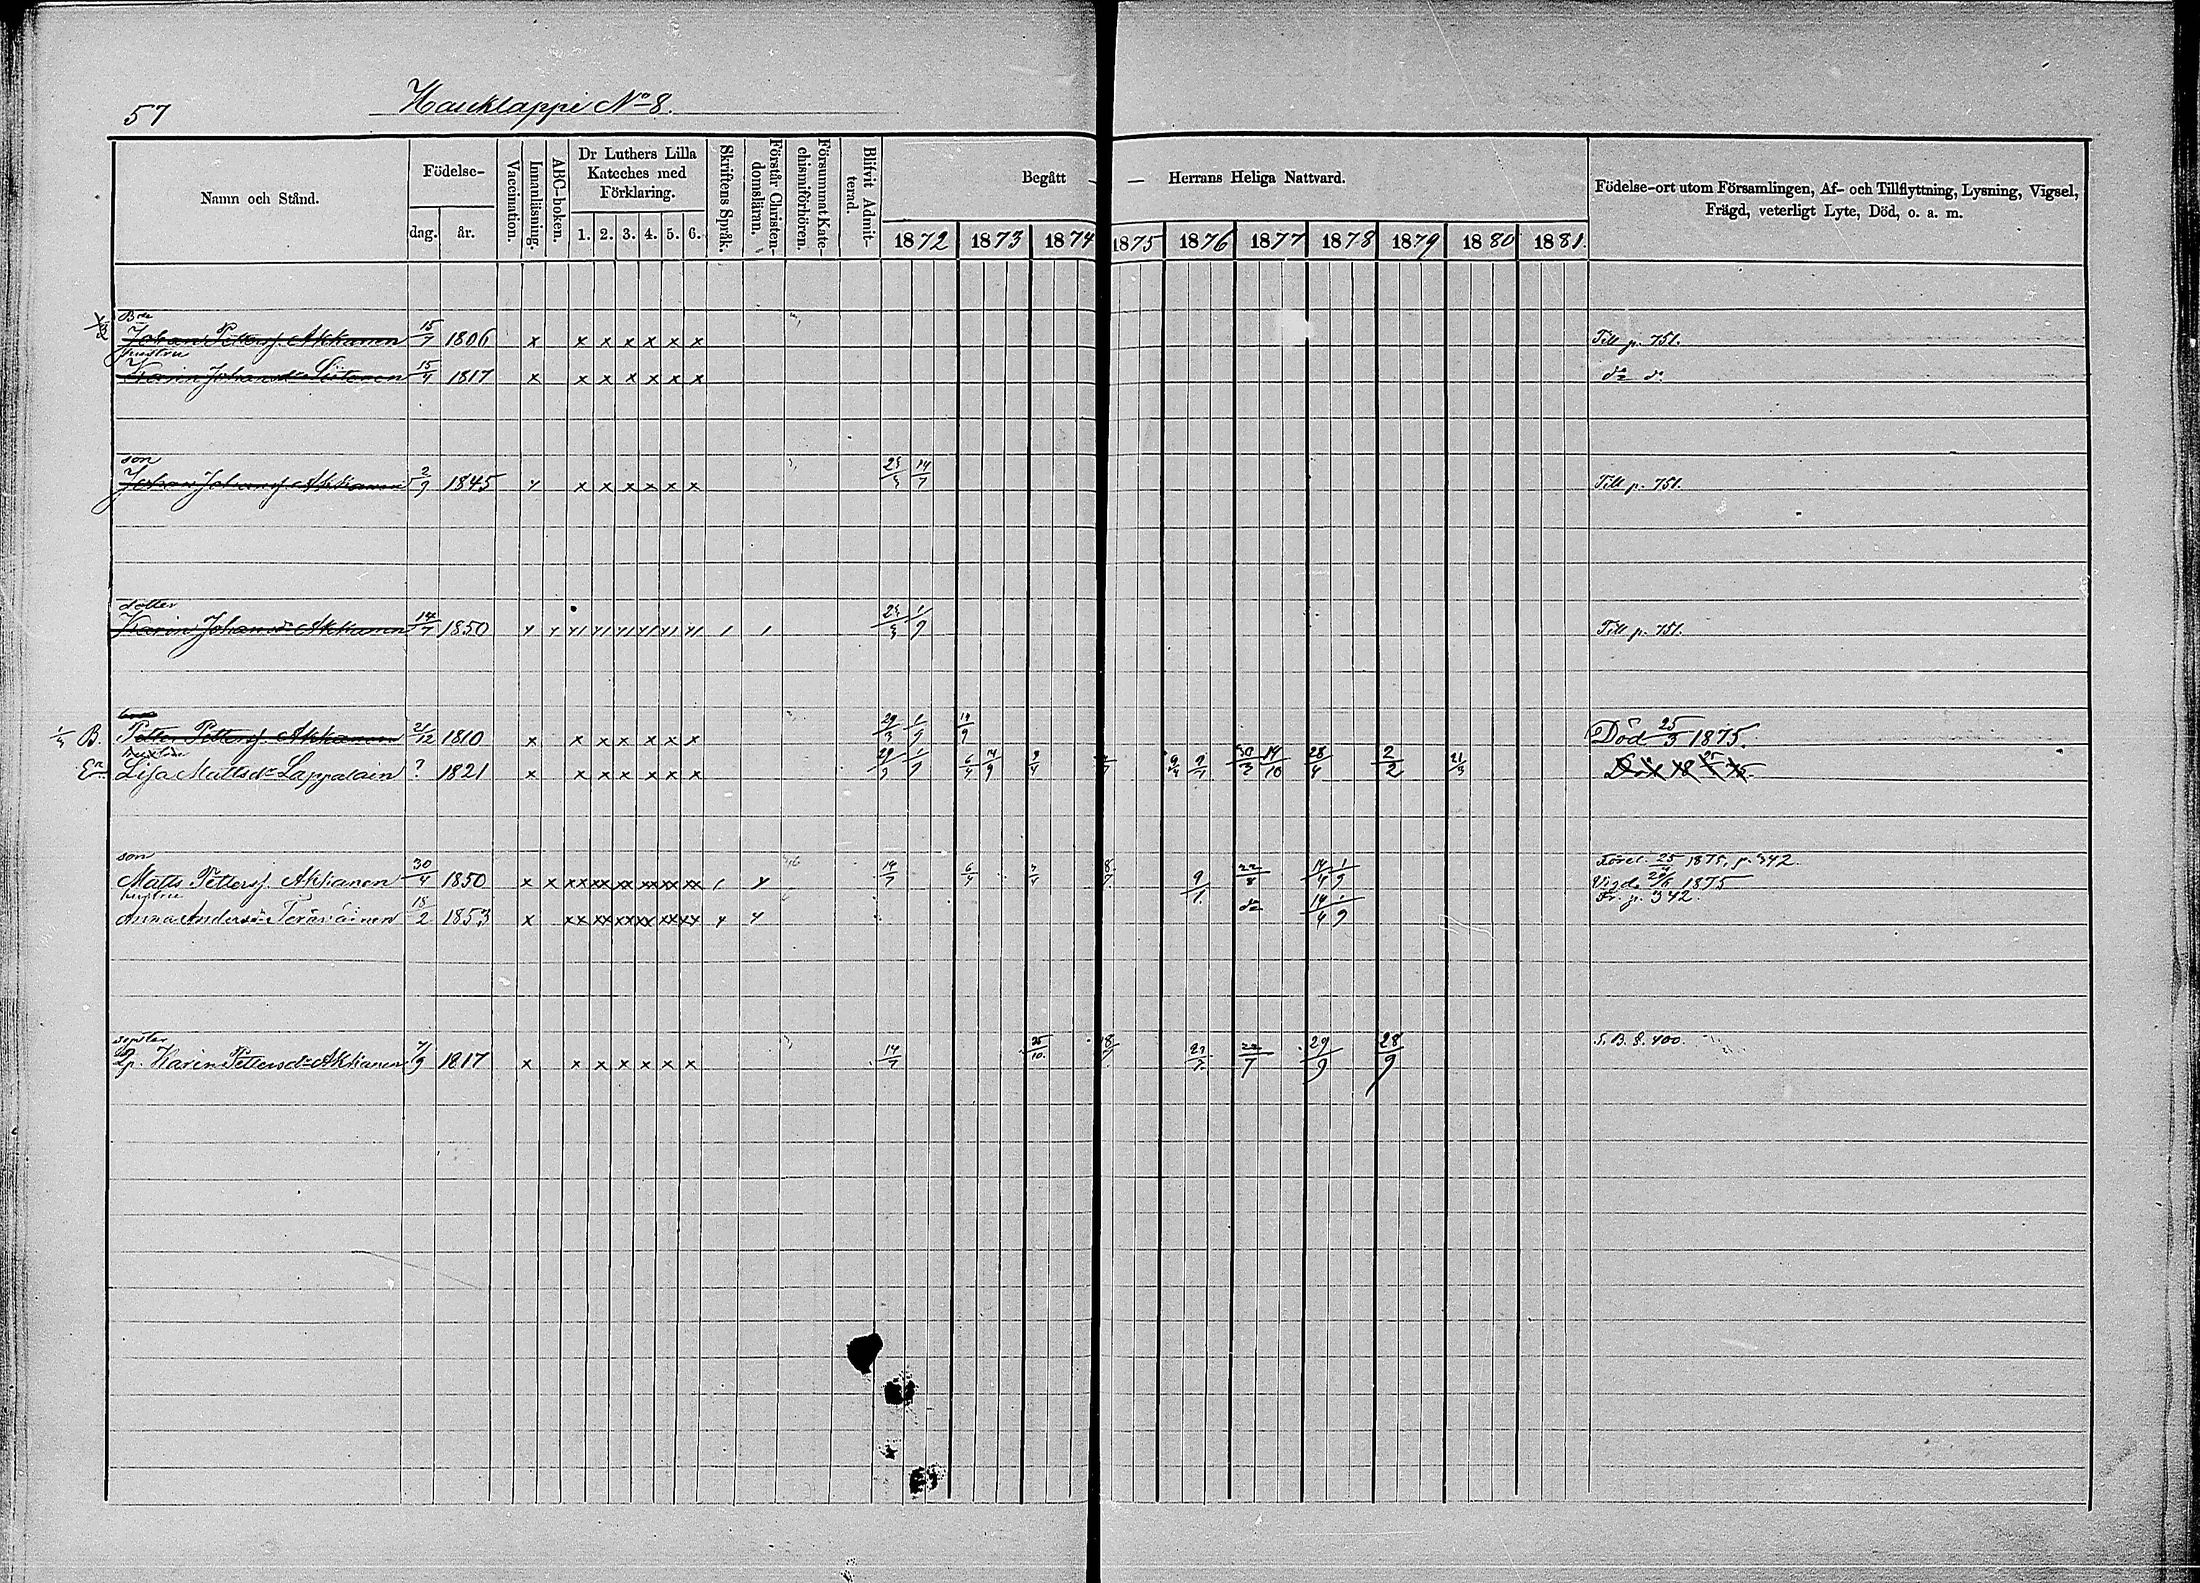 57
Hauklappi No 8.
Namn och Stånd.
Födelse-
dag.
år.
Vaccination.
Innanläsning.
ABC-boken.
Dr Luthers Lilla
Kateches med
Förklaring.
1. 2. 3. 4. 5. 6.
Skriftens Språk.
Förstår Christen-
domsläran.
Försummat Kate-
chismiförhören.
Blifvit Admit-
terad.
Begått — Herrans Heliga Nattvard.
1872 1873 1874 1875 1876 1877 1878 1879 1880 1881.
Födelse-ort utom Församlingen, Af- och Tillflyttning, Lysning, Vigsel,
Frägd, veterligt Lyte, Död, o. a. m.
Bde
Johan Pettersf. Akkanen 15/7 1806 x x x x x x x Till p. 751.
hustru
Karin Johansdr Siitonen 15/4 1817 x x x x x x x do do
son
Johan Johansf. Akkanen 2/9 1845 x x x x x x Till p. 751.
dotter
Karin Johansdr Akkanen 14/7 1850 Till p. 751.
1/4 B. Petter Pettersf. Akkanen 21/12 1810 x x x x x x x 29/3 1/9 19/9 Död 25/3 1875.
hustru
Enk. Lisa Mattsdr Lappalain ? 1821 x x x x x x x 6/4 14/9 30/3 14/10 28/4 2/2 21/3
son
Matts Pettersf. Akkanen 30/4 1850 x x xx xx xx xx xx xx 14/7 6/4 22/8 14/4 1/9 25 1875, p. 342.
Vigde 1875
hustru Fr. p. 342.
Anna Andersdr Teräväinen 18/2 1853 x xx xx xx xx xx xx do 14/4 1/9
syster
Qp. Karin Pettersdr Akkanen 7/9 1817 x x x x x x x 14/7 25/10 22/7 29/9 28/9 S. B. S. 400.